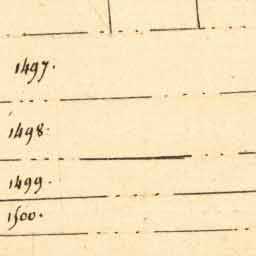 1497.
1498.
1499.
1500.